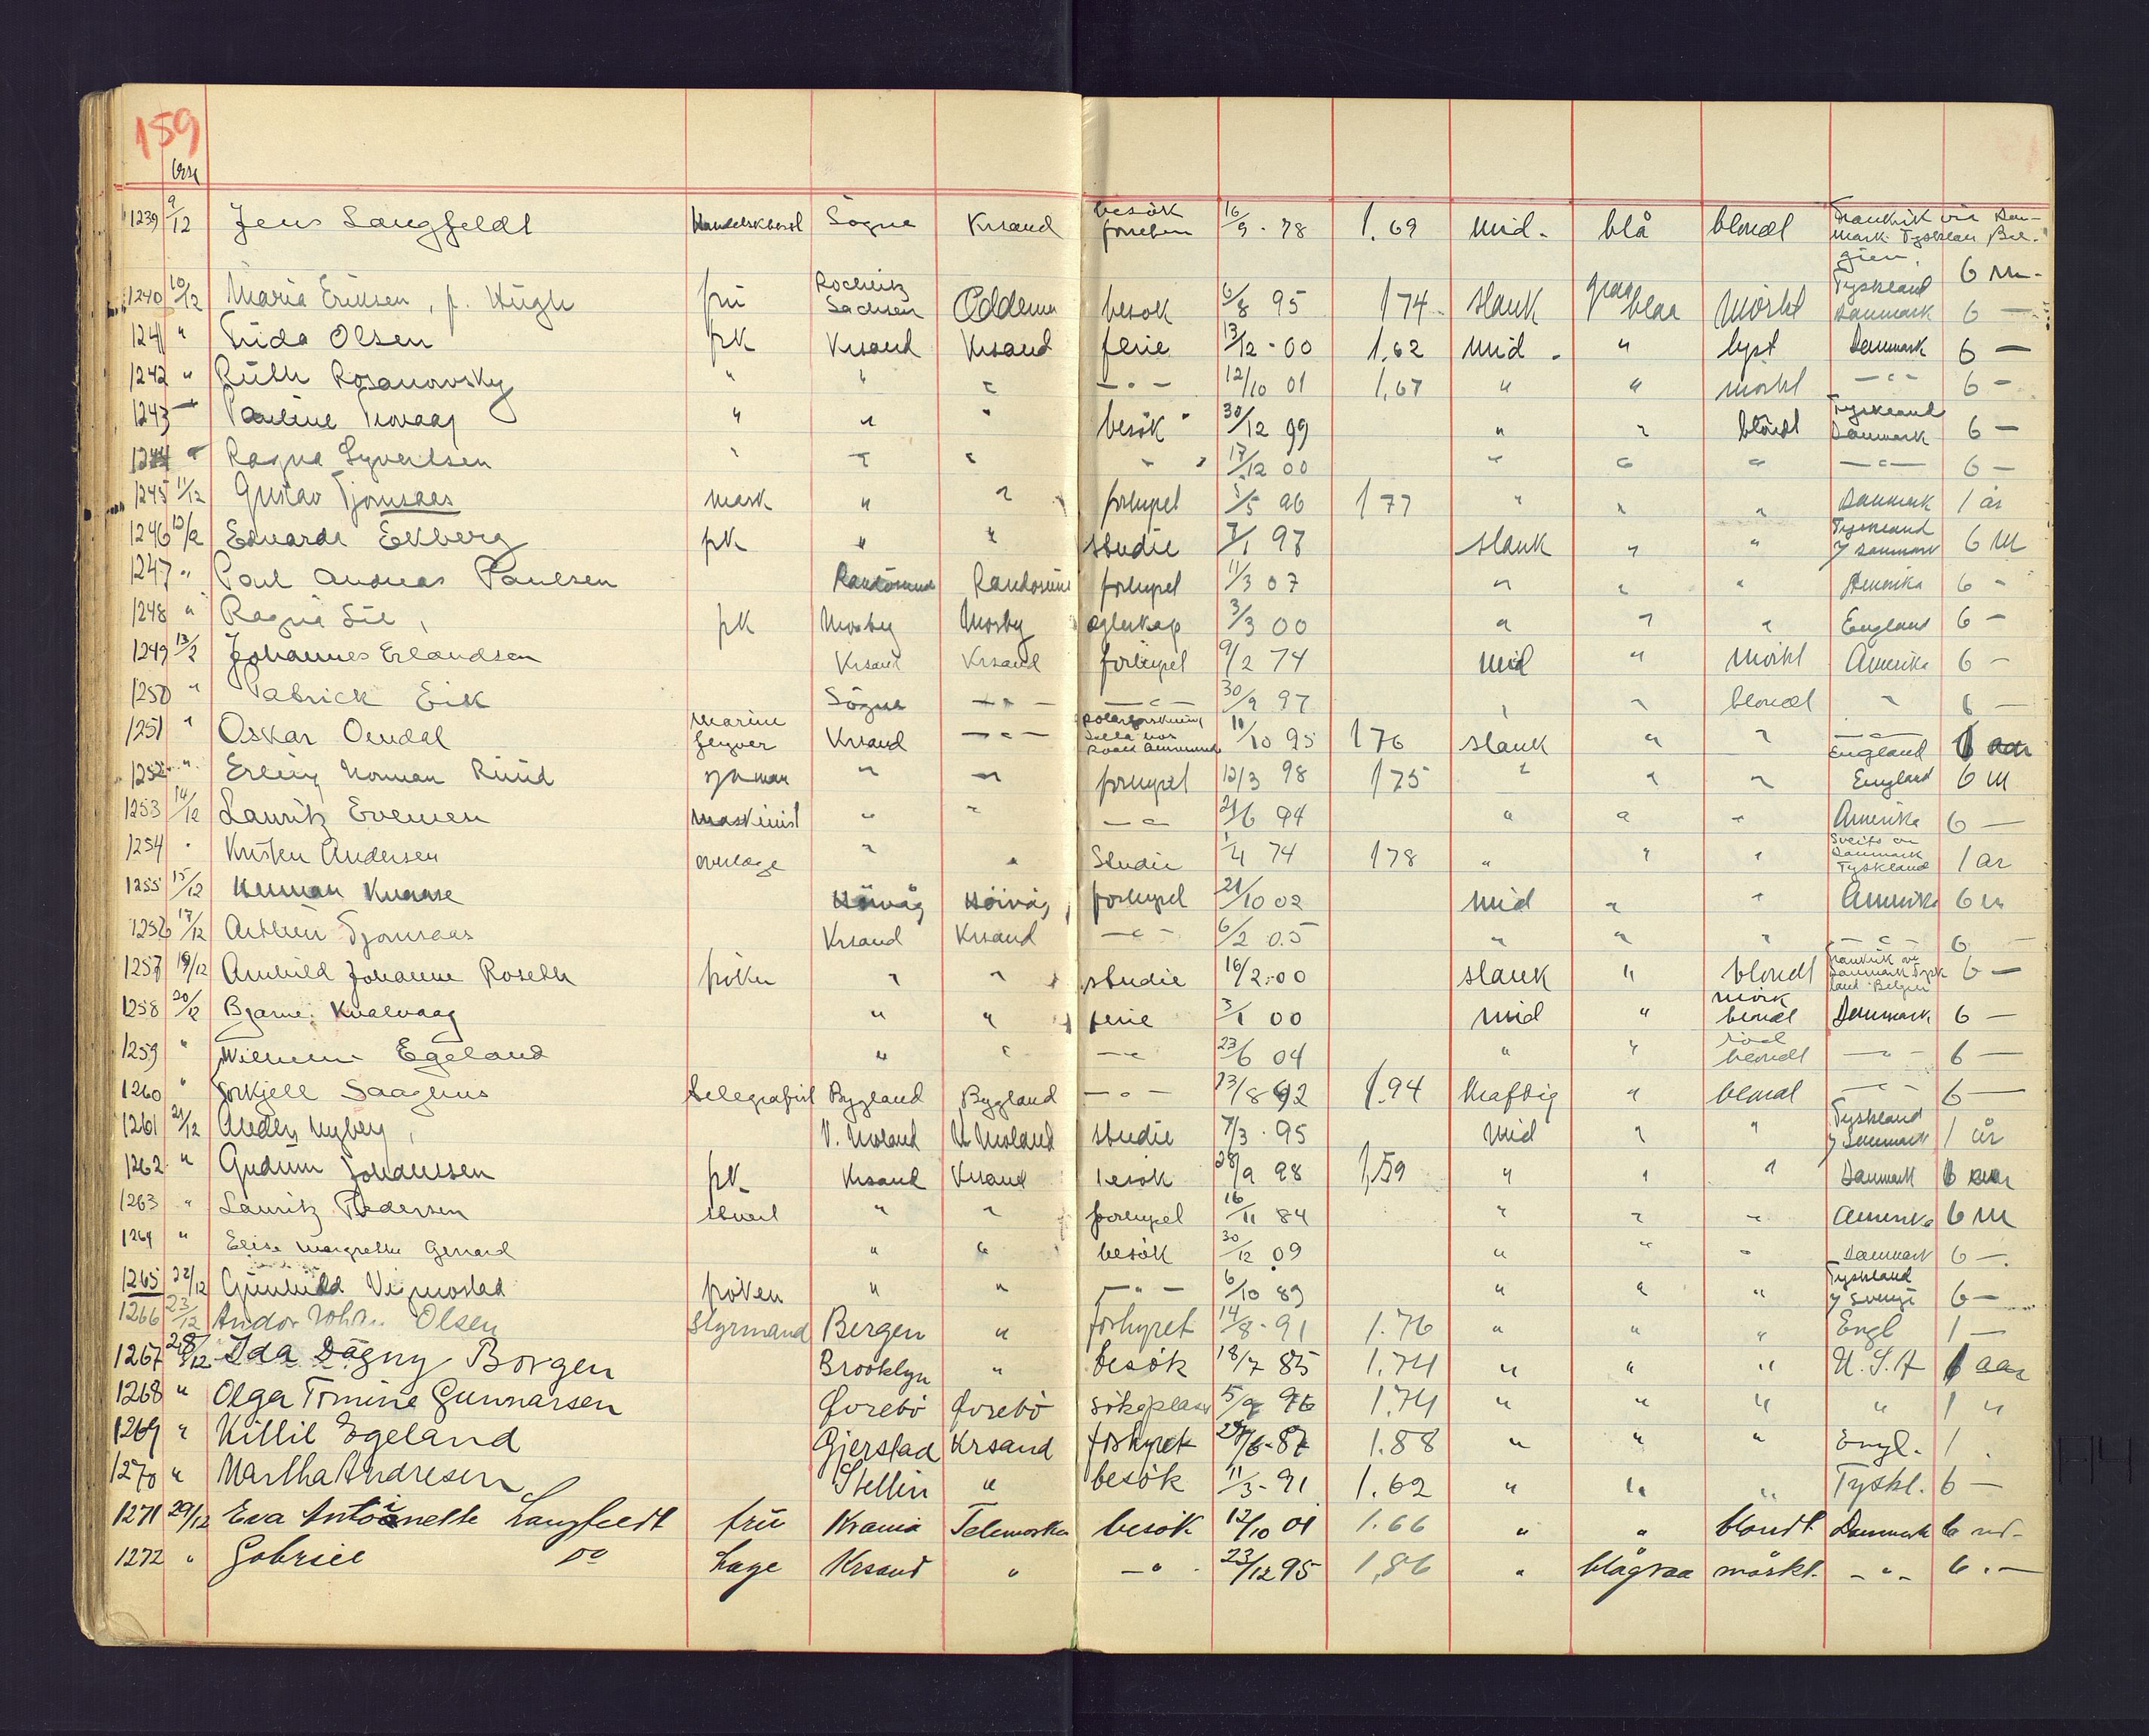 159
1239 9/12 Jens Langfeldt Sögne Krsand besök 16/9 - 78 1.69 mid. blå blondt Frankrik via Dan-mark Tyskland Bel-gien, 6 m.
1240 10/12 Maria Eriksen, f. Hügh frü Rochlitz Sachsen Oddernes besøk 6/8 95 174 slank graa blaa mörkt Tyskland Danmark 6 —
1241 " Frida Olsen frk Krsand Krsand ferie 13/12 - 00 1.62 mid. " lyst Danmark 6 —
1242 " Rüth Rosanowsky " " " — " — 12/10 01 1,67 " " mörkt — " — 6 —
1243 " Pauline Trovaag " " " besök 30/12 99 " " blondt Tyskland Danmark 6 —
1244 " Ragna Syvertsen " " " " 17/12 00 " " " — " — 6 —
1245 11/12 Gustav Tjomsaas mask " " forhyret 5/5 96 177 " " " Danmark 1 år
1246 12/12 Edvarda Ekberg frk " " studie 7/1 97 slank " " Tyskland y Danmark 6 m
1247 " Paul Andreas Paulsen Randösund Randösund forhyret 11/3 07 " " " Amerika 6 "
1248 " Ragna frk Mosby Mosby 3/3 00 " " " England 6 —
1249 13/2 Johannes Erlandsen Krsand Krsand forhyret 9/2 74 mid " mörkt Amerika 6 —
1250 " Patrick Eik Sögne — " — — " — 30/9 97 " " blondt " 6 —
1251 " Oskar Omdal marine flyver Krsand — " — polarforskning Roald Amundsen 11/10 95 176 slank " " — " — England aar
1252 " Erling Norman Rüüd sjöman " " forhyret 12/3 98 175 " " " England 6 m
1253 14/12 Lauritz Evensen maskinist " " — " 21/6 94 " " " Amerika 6 —
1254 " Kristen Andersen overlæge " " Studie 1/4 74 178 " " " Sveits Danmark Tyskland 1 år
1255 15/12 Herman Höivåg Höivåg forhyret 21/10 02 mid " " Amerika 6 m
1256 17/12 Arthür Tjomsaas Krsand Krsand — " — 6/2 05 " " " — " — 6 —
1257 19/12 Arnhild Johanne Roseth fröken " " studie 16/2.00 slank " blondt Frankrik Danmark Tysk land Belgien 6 —
1258 20/12 Bjarne Kvalvaag " " ferie 3/1 00 mid " mörk blondt Danmark 6 —
1259 " Wilhelm Egeland " " — " 23/6 04 " " röd blondt — " — 6 —
1260 " Torkjell Saaghus telegrafist Bygland Bygland — " — 23/8 92 1.94 kraftig " blondt — " — 6 —
1261 21/12 Anders Nyberg, V. Moland V. Moland studie 7/3 . 95 mid " " Tyskland y Danmark 1 år
1262 " Gudrün Johanssen frk Krsand Krsand besök 28/9 98 1,59 " " " Danmark
1263 " Lauritz Pedersen " " forhyret 16/11 84 " " " Amerika 6 m
1264 " Elise Margrethe Gerrard " " besök 30/12 09 " " " Danmark 6 —.
1265 22/12 Gunhild Vigmostad fröken " " — " — 6/10 89 " " " Tyskland y Sverige 6 —
1266 23/12 Andor Johan Olsen Styrmand Bergen " forhyret 14/8 - 91 1.76 " " " Engl 1 —
1267 28/12 Ida Dagny Borgen Brooklyn " besök 18/7 85 1.74 " " " U.S.A aar
1268 " Olga Tomine Gunnarsen Øvrebö Øvrebö söke plass 5/9 96 1.74 " " " " 1 "
1269 " Killil Egeland Gjerstad Krsand forhyret 1.88 " " " Engl. 1 .
1270 " Martha Andresen Stettin " besök 11/3 - 91 1.62 " " " Tyskl. 6 —
1271 29/12 Eva Antoinette Langfeldt frü Krania Telemarken besök 12/10 01 1.66 " " blondt Danmark 6 md.
1272 " Gabriel do Læge Krsand " — " 23/12 95 1,86 " blågraa mörkt. — " — 6 . —